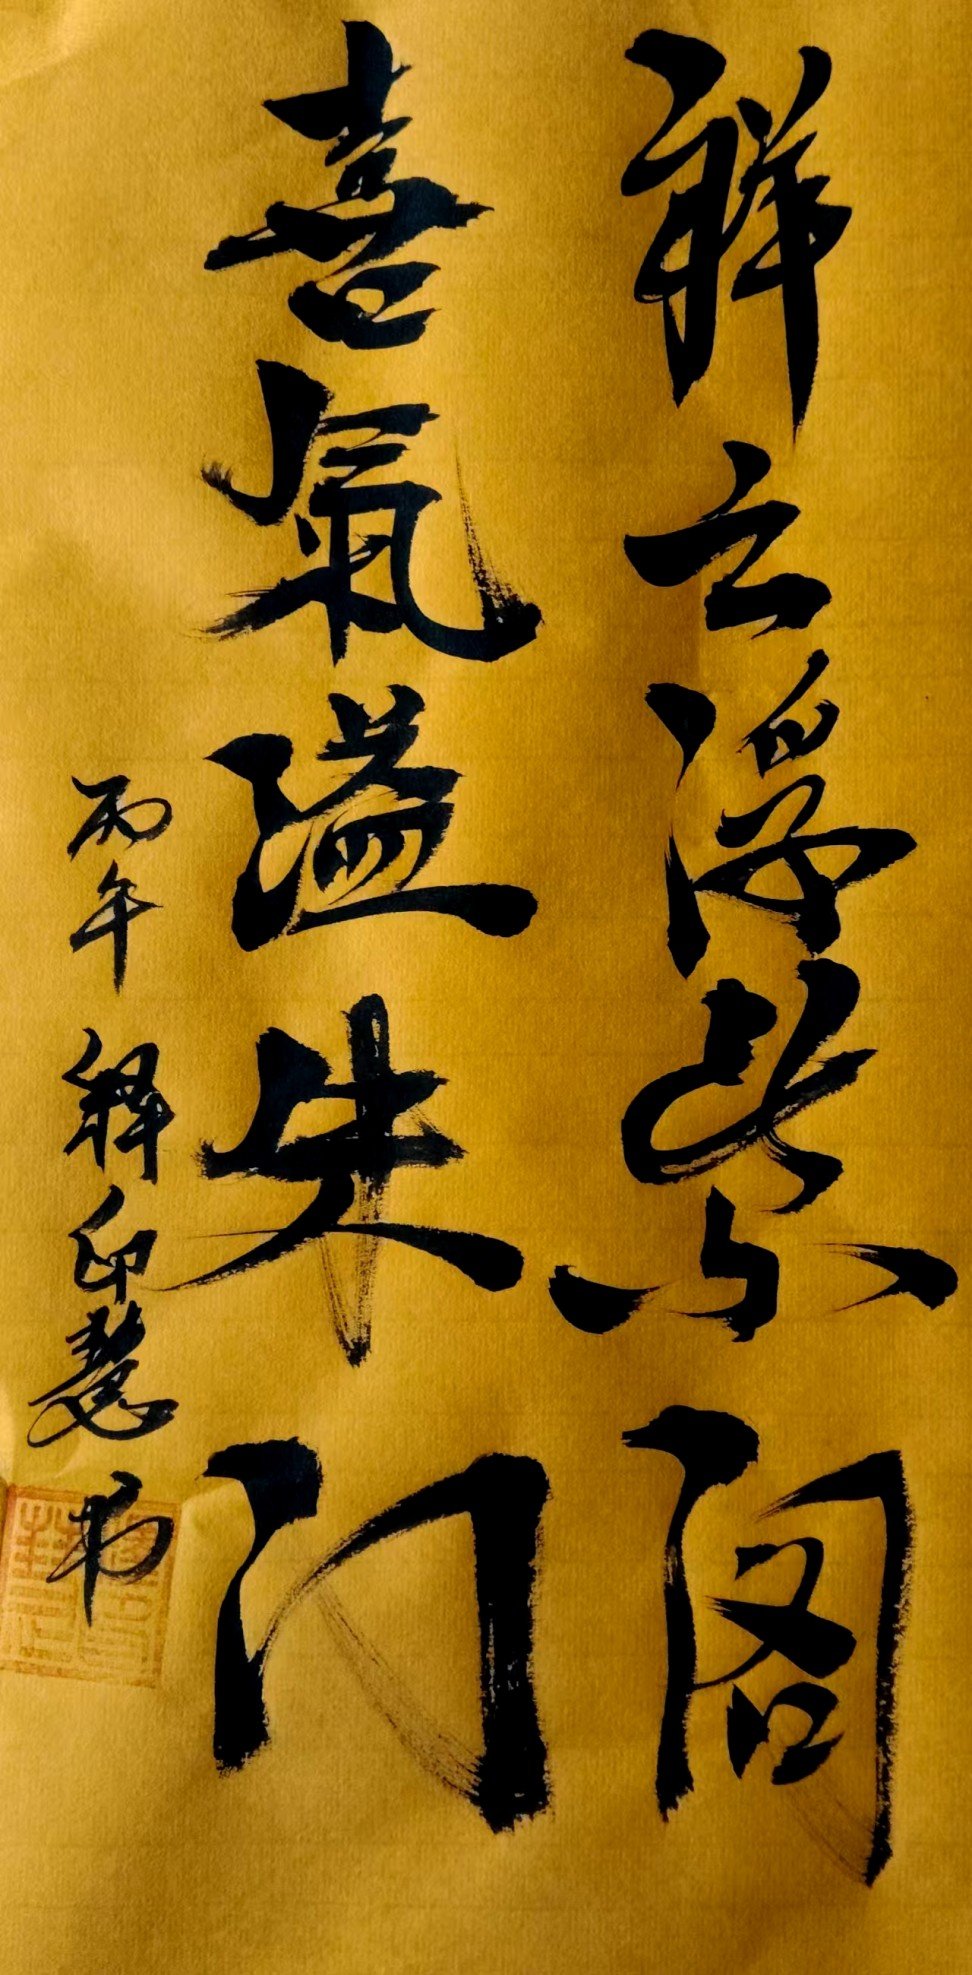 祥云浮紫阁
喜氣溢朱门
丙午 释印慧书